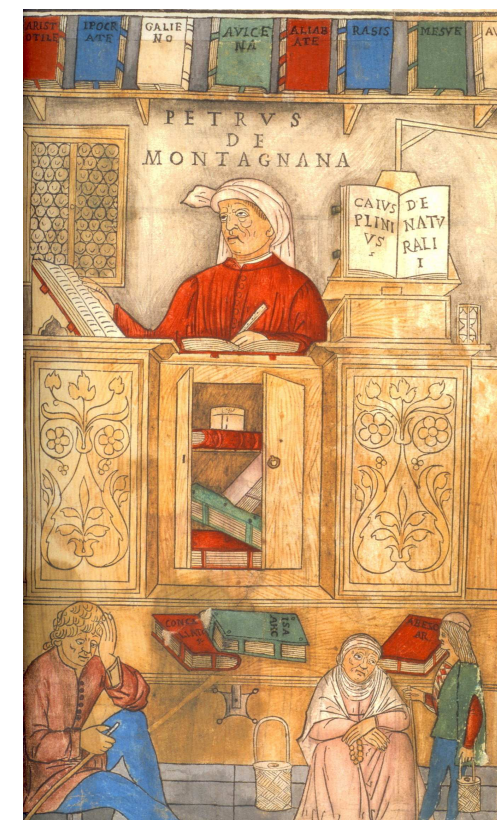 ARIST
OTILE
IPOCR
ATE
GALIE
NO
AVICE
NA
ALIAB
ATE
RASIS
MESVE
AV
PETRVS
DE
MONTAGNANA
CAIVS
PLINI
VS
DE
NATV
RALI
I
ISA
AR